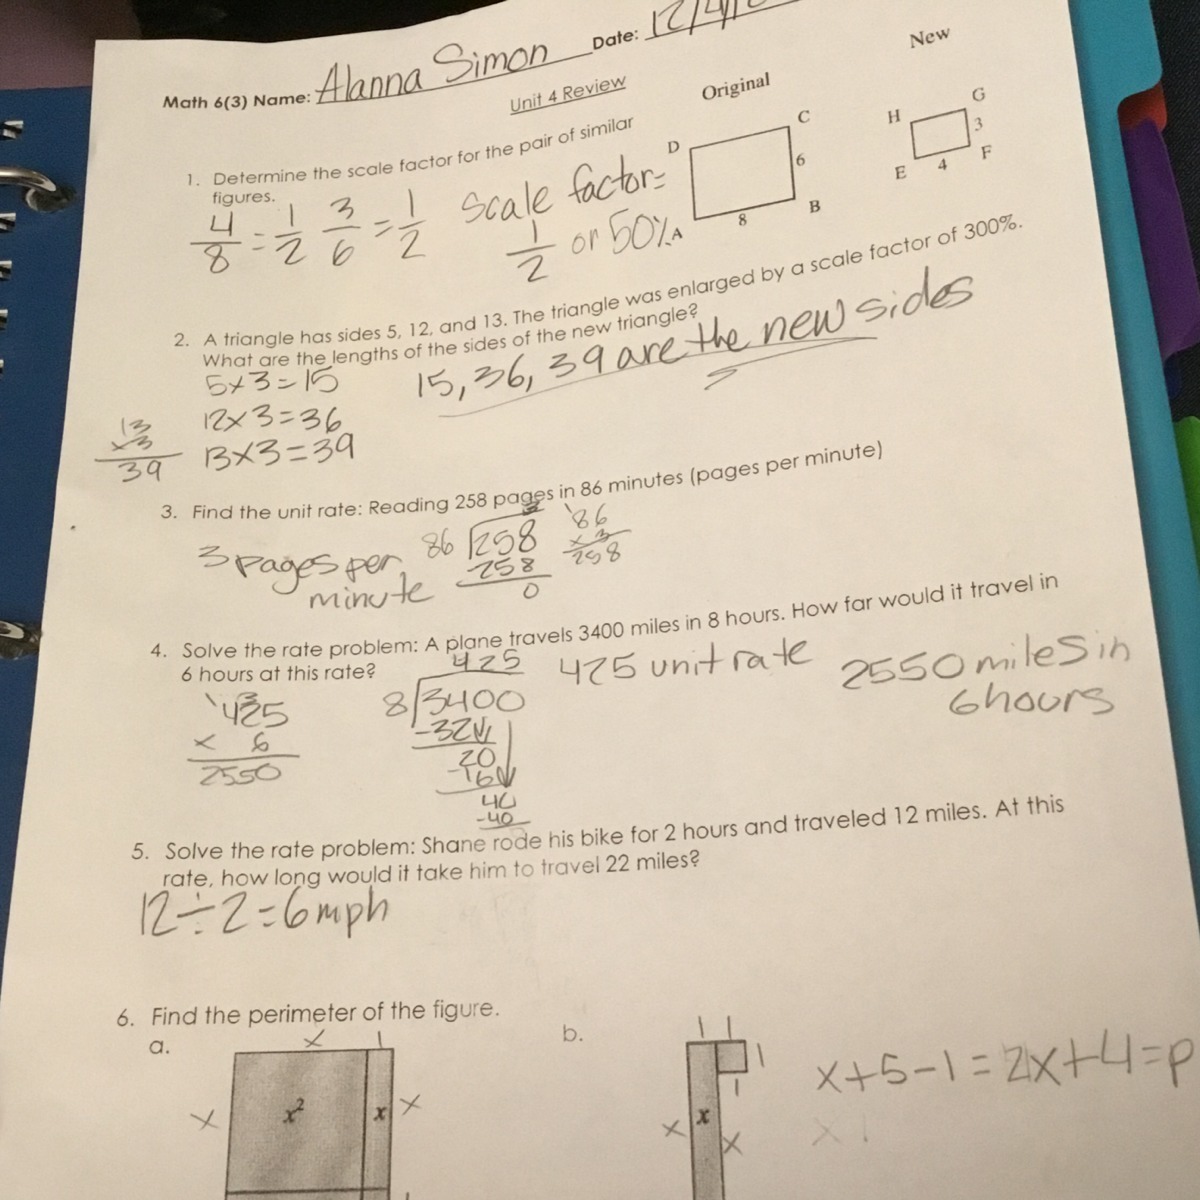 Math 6(3) Name: Alanna Simon Date: 12/4/
Unit 4 Review
Original
New
1. Determine the scale factor for the pair of similar
figures.
4/8 = 1/2 3/6 = 1/2 Scale factor=
1/2 or 50%
D
C
6
A
8
B
H
G
3
E
4
F
2. A triangle has sides 5, 12, and 13. The triangle was enlarged by a scale factor of 300%.
What are the lengths of the sides of the new triangle?
5x3=15
12x3=36
13x3=39
13
x3
39
15, 36, 39 are the new sides
3. Find the unit rate: Reading 258 pages in 86 minutes (pages per minute)
3 pages per
minute
3
86 258
258
0
1
86
x 3
258
4. Solve the rate problem: A plane travels 3400 miles in 8 hours. How far would it travel in
6 hours at this rate?
1 3
425
x 6
2550
425
8 3400
-32
20
-16
40
-40
425 unit rate
2550 miles in
6 hours
5. Solve the rate problem: Shane rode his bike for 2 hours and traveled 12 miles. At this
rate, how long would it take him to travel 22 miles?
12÷2=6mph
6. Find the perimeter of the figure.
a.
x 1
x
x²
x
x
b.
1 1
1
1
x
x
x
x+5-1=2x+4=p